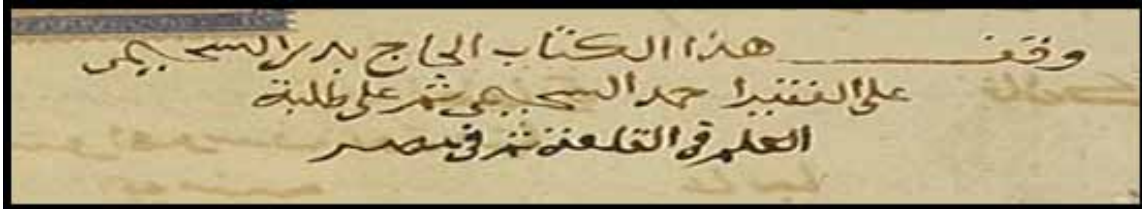 وقف هذا الكتاب الحاج بدر السحيمى
على الفقير احمد السحيمى ثم على طلبة
العلم فى القلعة ثم فى مصر